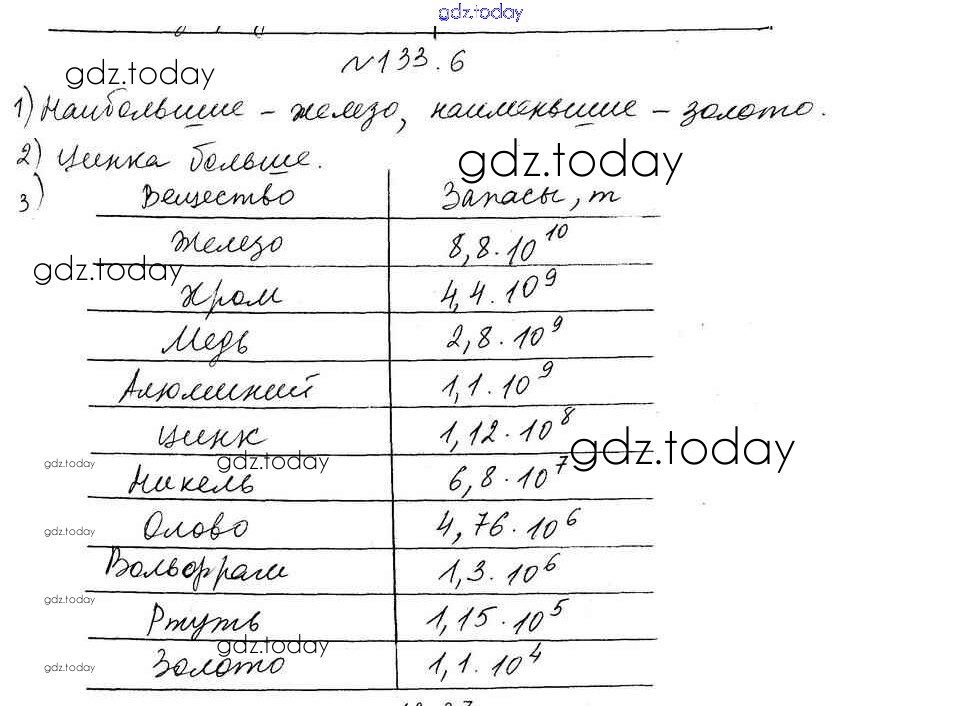 gdz.today
№133.6
gdz.today
1) Наибольшие – железо, наименьшие – золото.
2) Цинка больше.
gdz.today
3)
Вещество Запасы, т
Железо 8,8·10^10
gdz.today
Хром 4,4·10^9
Медь 2,8·10^9
Алюминий 1,1·10^9
Цинк 1,12·10^8
gdz.today
gdz.today gdz.today
Никель 6,8·10^7
Олово 4,76·10^6
gdz.today
Вольфрам 1,3·10^6
gdz.today
Ртуть 1,15·10^5
gdz.today
Золото 1,1·10^4
gdz.today